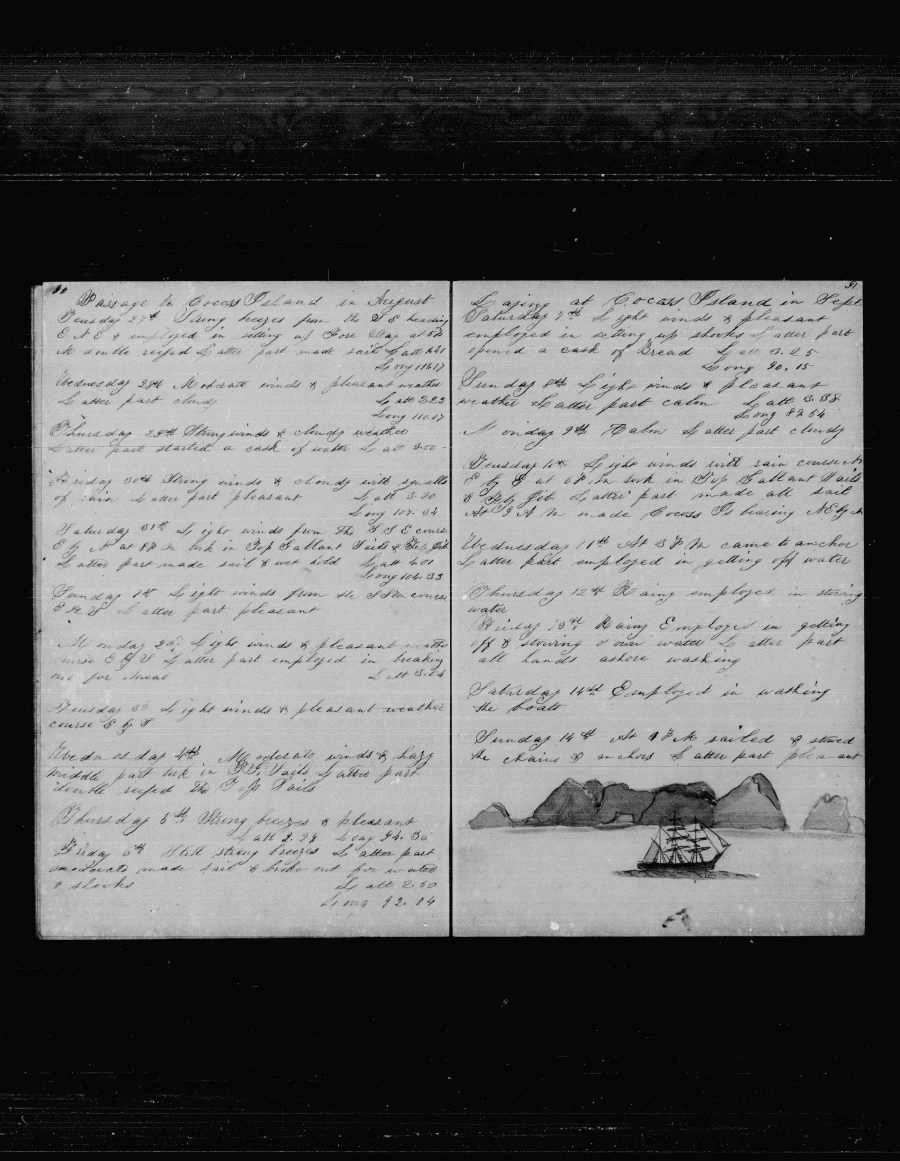 Passage to Cocoas Island in August
Tuesday 27th Strong breezes from the S E heading
E N E & employed in setting up Fore Stay at 5 P
M double reefed Latter part made sail Latt
Long 114.17
Wednesday 28th Moderate winds & pleasant weather
Latter part cloudy Latt 2.23
Long 110.07
Thursday 29th Strong winds & cloudy weather
Latter part started a cask of water Latt
Friday 30th Strong winds & cloudy with squalls
of rain Latter part pleasant Latt 3.20
Long 107.34
Saturday 31st Light winds from The S S E course
E by N at 8 P M took in Top Gallant Sails & Fly Jib
Latter part made sail & wet hold Latt 4.01
Long 104.33
Sunday 1st Light winds from the S S W course
E by S Latter part pleasant
Monday 2nd Light winds & pleasant weather
course E by S Latter part employed in breaking
out for meat Latt 3.04
Tuesday 3d Light winds & pleasant weather
course E by S
Wednesday 4th Moderate winds & hazy
middle part took in T.G. Sails Latter part
double reefed The Top Sails
Thursday 5th Strong breezes & pleasant
Latt 2.29 Long 94.30
Friday 6th Still strong breezes Latter part
moderate made sail & broke out for water
& shooks Latt 2.50
Long 92.04
31
Laying at Cocoas Island in Sept
Saturday 7th Light winds & pleasant
employed in setting up shooks Latter part
opened a cask of Bread Latt 3.25
Long 90.15
Sunday 8th Light winds & pleasant
weather Latter part calm Latt 3.38
Long 89.54
Monday 9th Calm Latter part cloudy
Tuesday 10th Light winds with rain course N
E by E at 6 P M took in Top Gallant Sails
& Fly Jib Latter part made all sail
At 9 A M made Cocoas Is bearing NE by N
Wednesday 11th At 3 P M came to anchor
Latter part employed in getting off water
Thursday 12th Rainy employed in stowing
water
Friday 13th Rainy Employed in getting
off & stowing down water Latter part
all hands ashore washing
Saturday 14th Employed in washing
the boats
Sunday 14th At 1 P M sailed & stowed
the chains & anchors Latter part pleasant